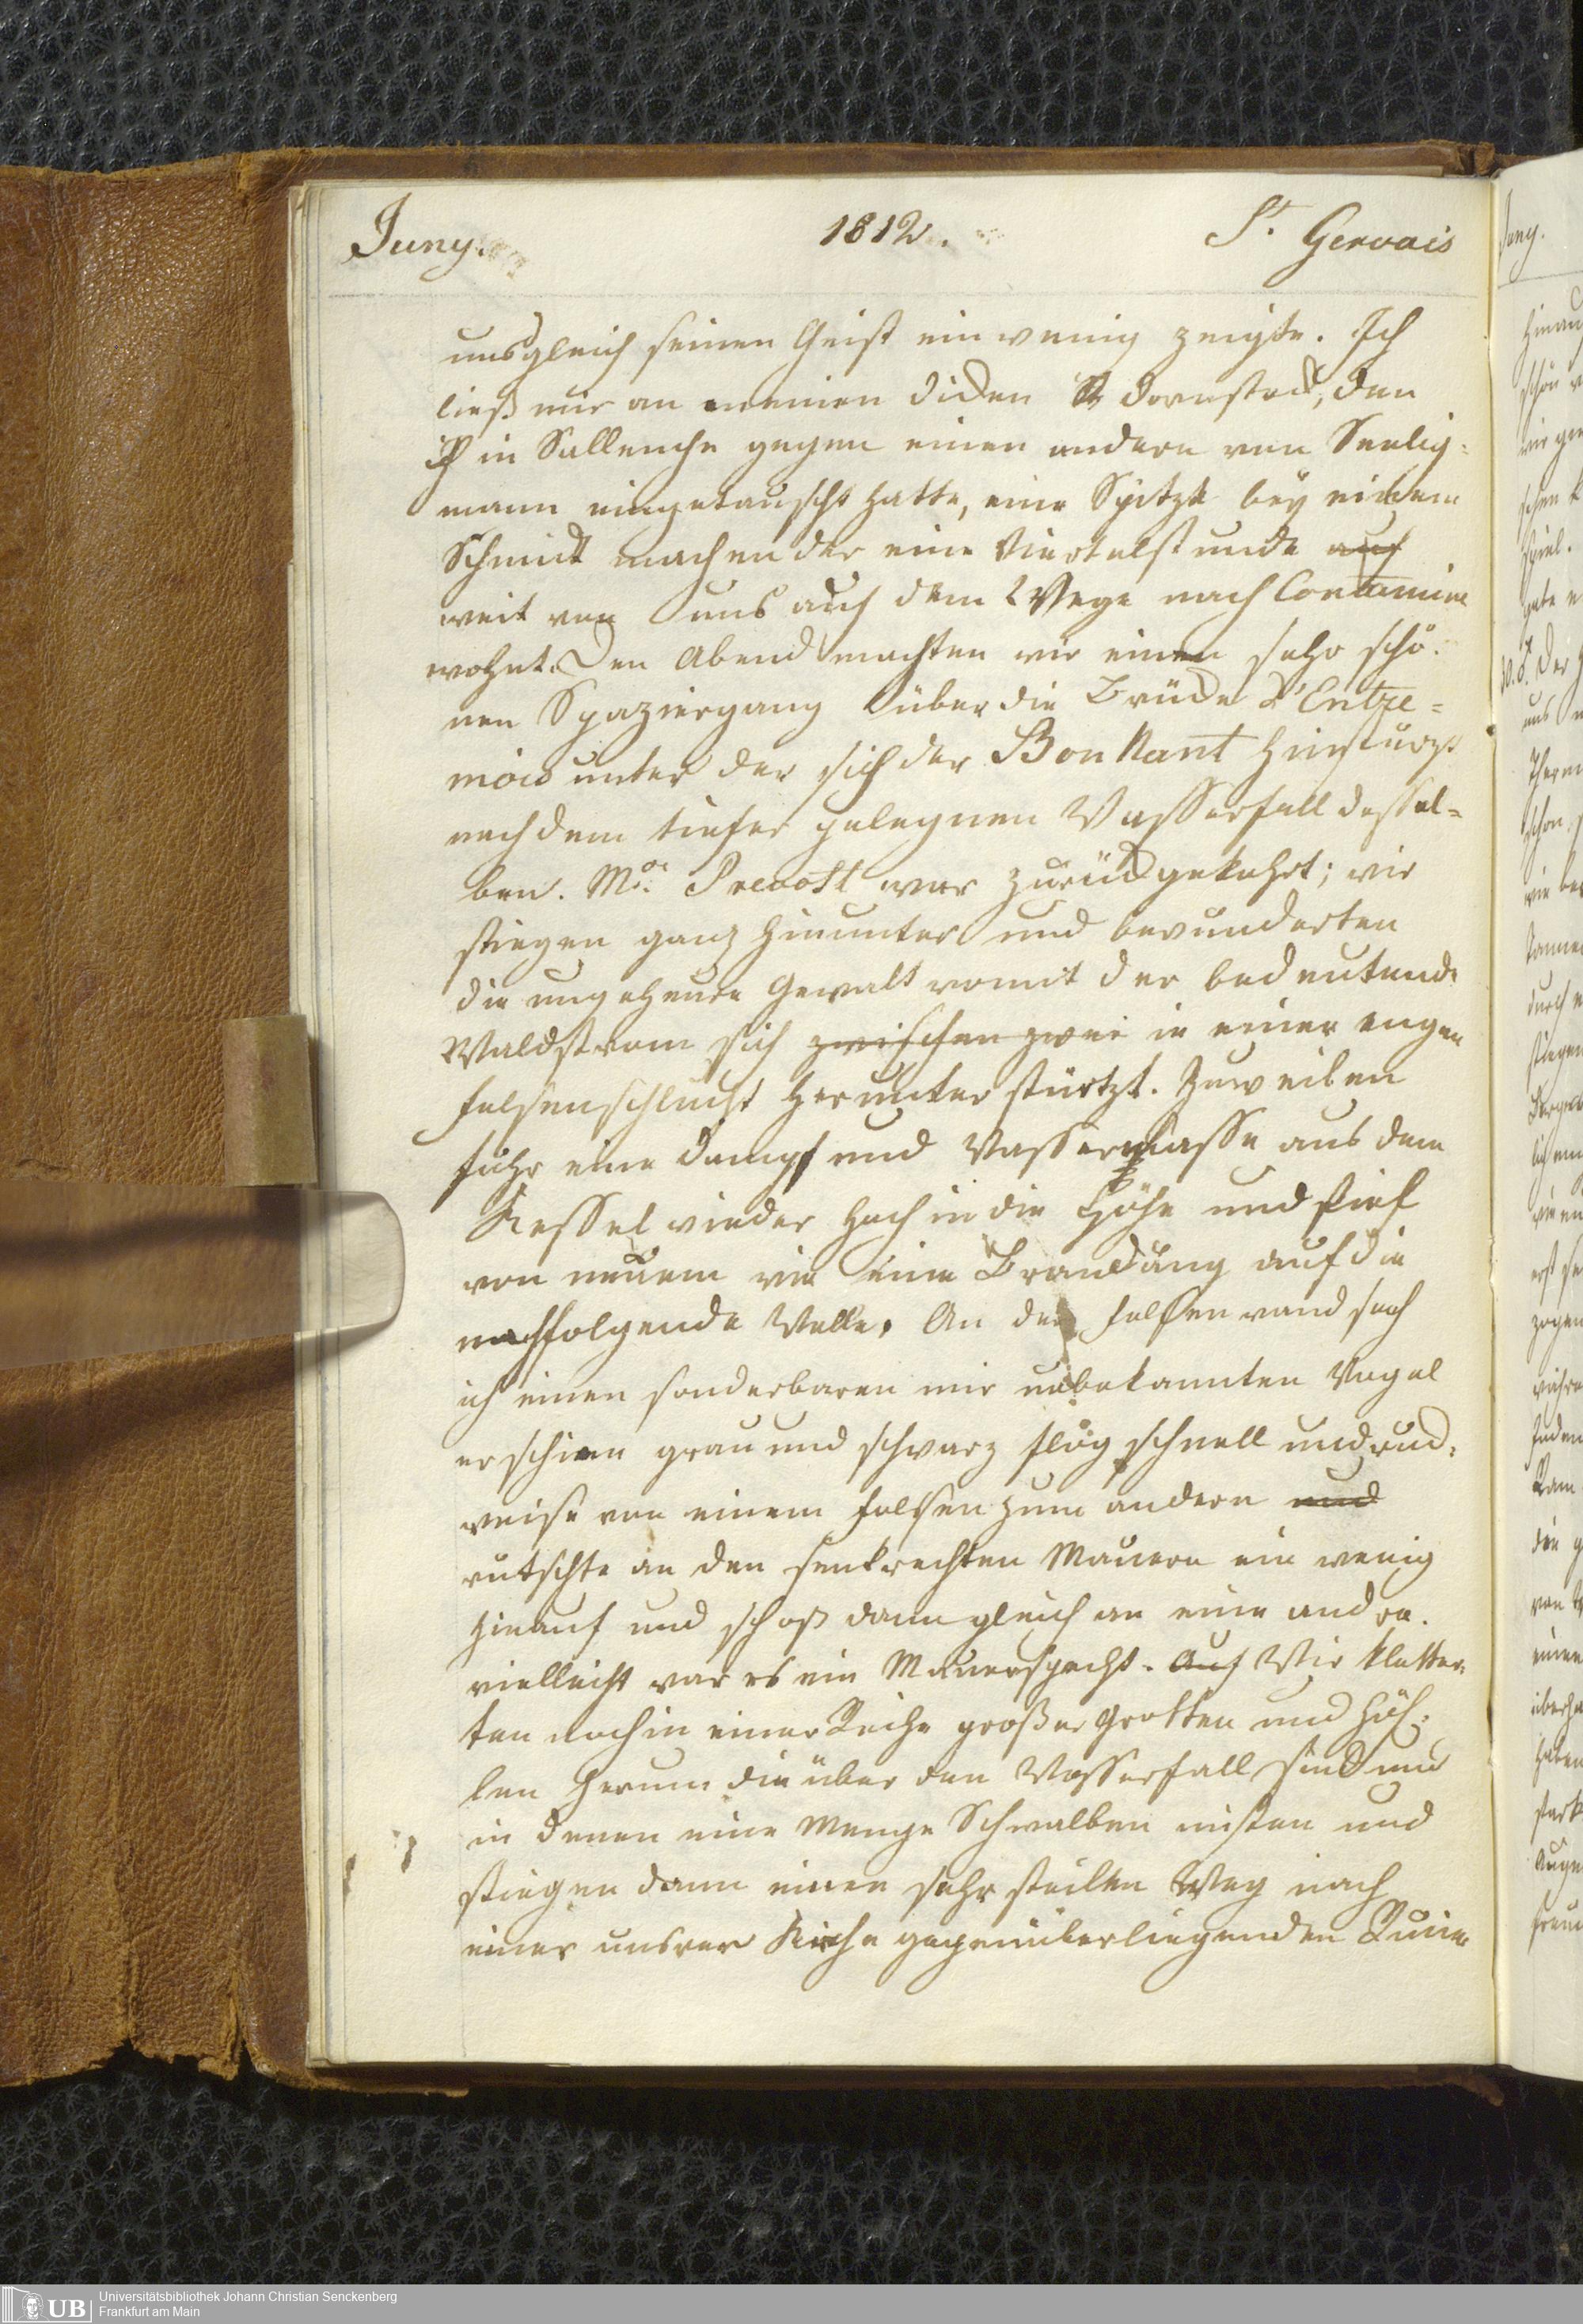 Juny.
1812.
St. Gervais
uns gleich seinen Geist ein wenig zeigte. Ich
ließ mir an meinen dicken Dornstock, den
ich in Sallenche gegen einen andern von Seelig-
mann eingetauscht hatte, eine Spitze bey einem
Schmidt machen der eine Viertelstunde auf
weit von uns auf dem Wege nach Contamine
wohnt. Den Abend machten wir einen sehr schö-
nen Spaziergang über die Brücke d'Entre-
mois unter der sich der Bon Nant hinstürzt
nach dem tiefer gelegnen Wasserfall dessel-
ben. Mor. Prevost war zurückgekehrt; wir
stiegen ganz hinunter und bewunderten
die ungeheure Gewalt womit der bedeutende
Waldstrom sich zwischen zwei in einer engen
Felsenschlucht herunter stürtzt. Zuweilen
fuhr eine Dampf und Wassermasse aus dem
Kessel wieder hoch in die Höhe und stieß
von neuem wie eine Brandung auf die
nachfolgende Welle. An der Felsenwand sah
ich einen sonderbaren mir unbekannten Vogel
er schien grau und schwarz flog schnell und ruck-
weise von einem Felsen zum andern und
rutschte an den senkrechten Mauern ein wenig
hinauf und schoß dann gleich an eine andre.
vielleicht war es ein Mauerspecht. Auf Wir kletter-
ten noch in einer Reihe großer Grotten und Höh-
len herum die über den Wasserfall sind und
in denen eine Menge Schwalben nisten und
stiegen dann einen sehr steilen Weg nach
einer unsrer Kirche gegenüberliegenden Ruine
Universitätsbibliothek Johann Christian Senckenberg
Frankfurt am Main
UB